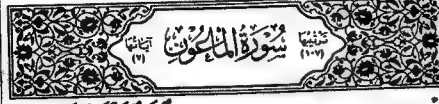 ترتيبها (١٠٧) سُورَةُ المَاعُونِ آياتها (٧)